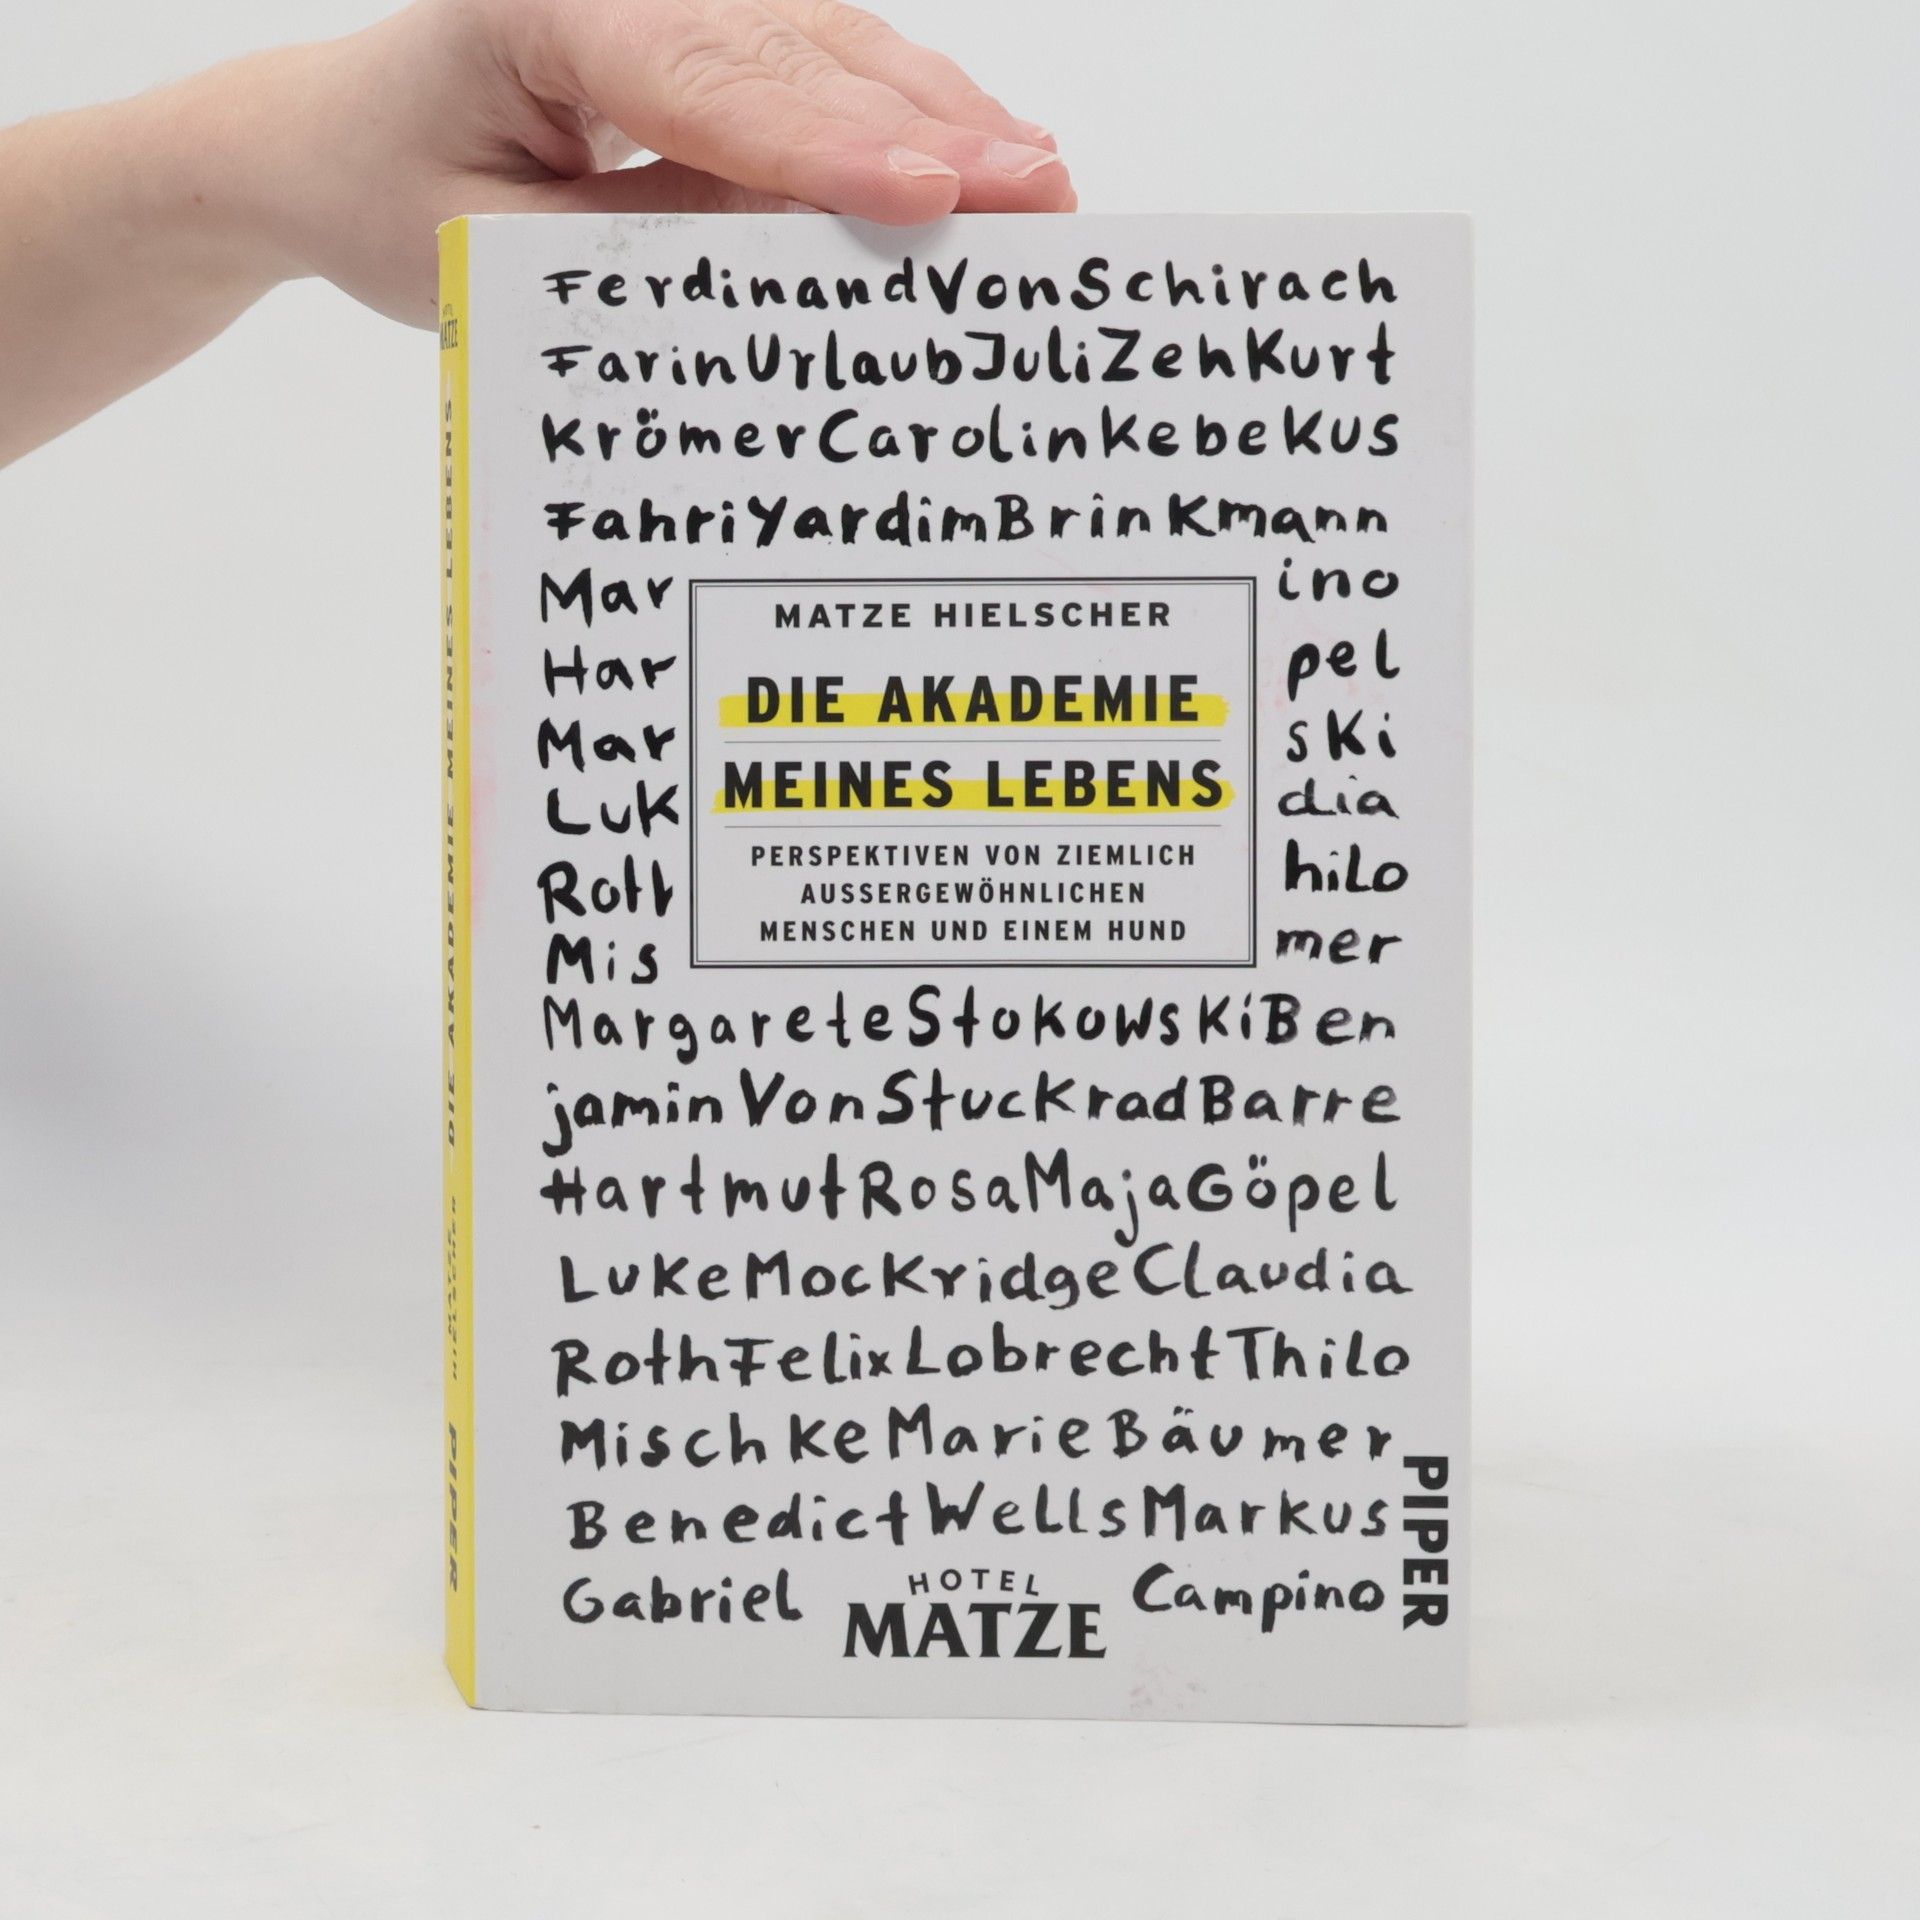 FerdinandVonSchirach
FarinUrlaubJuliZehKurt
KrömerCarolinKebeKus
FahriYardimBrinkmann
Mar ino
Har pel
Mar ski
Luk dia
Rott hilo
Mis mer
MATZE HIELSCHER
DIE AKADEMIE
MEINES LEBENS
PERSPEKTIVEN VON ZIEMLICH
AUSSERGEWÖHNLICHEN
MENSCHEN UND EINEM HUND
MargareteStokowskiBen
jaminVonStuckradBarre
HartmutRosaMajaGöpel
LukeMockridgeClaudia
RothFelixLobrechtThilo
MischkeMarieBäumer
BenedictWellsMarkus
Gabriel Campino
HOTEL
MATZE
PIPER
HOTEL
MATZE
DIE AKADEMIE MEINES LEBENS
MATZE
HIELSCHER
PIPER